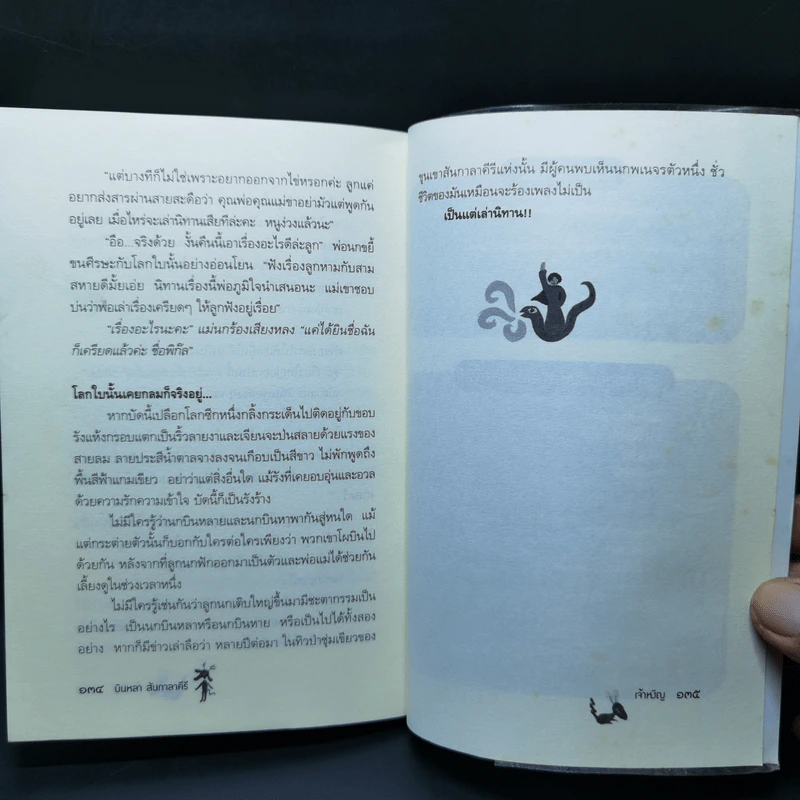 "แต่บางทีก็ไม่ใช่เพราะอยากออกจากไข่หรอกค่ะ ลูกแค่
อยากส่งสารผ่านสายสะดือว่า คุณพ่อคุณแม่ขาอย่ามัวแต่พูดกัน
อยู่เลย เมื่อไหร่จะเล่านิทานเสียทีล่ะคะ หนูง่วงแล้วนะ"
"อือ...จริงด้วย งั้นคืนนี้เอาเรื่องอะไรดีล่ะลูก" พ่อนกขยี้
ขนศีรษะกับโลกใบนั้นอย่างอ่อนโยน "ฟังเรื่องลูกหามกับสาม
สหายดีมั้ยเอ่ย นิทานเรื่องนี้พ่อภูมิใจนำเสนอนะ แม่เขาชอบ
บ่นว่าพ่อเล่าเรื่องเครียดๆ ให้ลูกฟังอยู่เรื่อย"
"เรื่องอะไรนะคะ" แม่นกร้องเสียงหลง "แค่ได้ยินชื่อฉัน
ก็เครียดแล้วค่ะ ชื่อพิกึ๊ล"
โลกใบนั้นเคยกลมก็จริงอยู่...
หากบัดนี้เปลือกโลกซีกหนึ่งกลิ้งกระเด็นไปติดอยู่กับขอบ
รังแห้งกรอบแตกเป็นริ้วลายงาและเจียนจะป่นสลายด้วยแรงของ
สายลม ลายประสีน้ำตาลจางลงจนเกือบเป็นสีขาว ไม่พักพูดถึง
พื้นสีฟ้าแกมเขียว อย่าว่าแต่สิ่งอื่นใด แม้รังที่เคยอบอุ่นและอวล
ด้วยความรักความเข้าใจ บัดนี้ก็เป็นรังร้าง
ไม่มีใครรู้ว่านกบินหลายและนกบินหาพากันสู่หนใด แม้
แต่กระต่ายตัวนั้นก็บอกกับใครต่อใครเพียงว่า พวกเขาโผบินไป
ด้วยกัน หลังจากที่ลูกนกฟักออกมาเป็นตัวและพ่อแม่ได้ช่วยกัน
เลี้ยงดูในช่วงเวลาหนึ่ง
ไม่มีใครรู้เช่นกันว่าลูกนกเติบใหญ่ขึ้นมามีชะตากรรมเป็น
อย่างไร เป็นนกบินหลาหรือนกบินหาย หรือเป็นไปได้ทั้งสอง
อย่าง หากก็มีข่าวเล่าลือว่า หลายปีต่อมา ในทิวป่าชุ่มเขียวของ
๑๓๔ บินหลา สันกาลาคีรี
ขุนเขาสันกาลาคีรีแห่งนั้น มีผู้คนพบเห็นนกพเนจรตัวหนึ่ง ชั่ว
ชีวิตของมันเหมือนจะร้องเพลงไม่เป็น
เป็นแต่เล่านิทาน!!
เจ้าหงิญ ๑๓๕